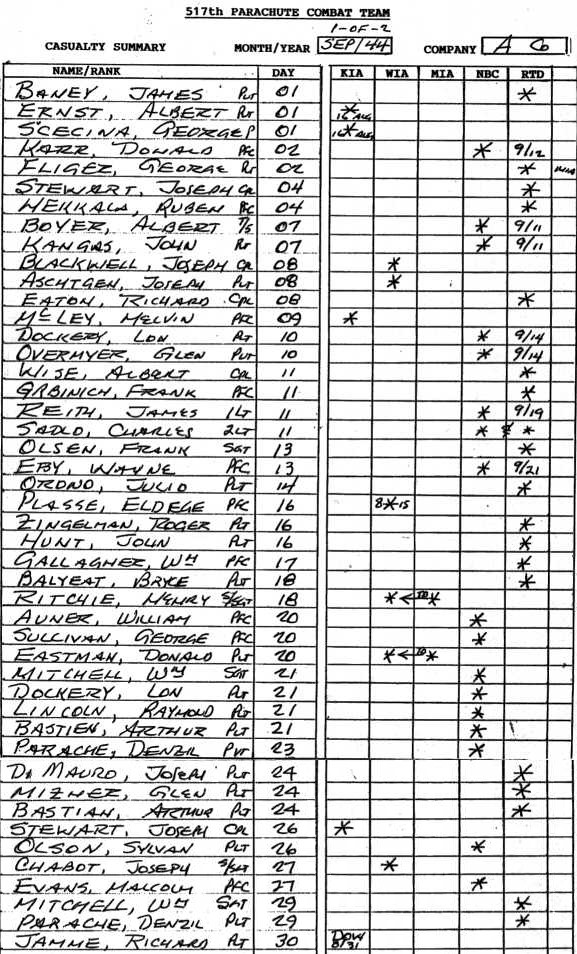 517th PARACHUTE COMBAT TEAM
1-OF-2
CASUALTY SUMMARY MONTH/YEAR SEP/44 COMPANY A Co
NAME/RANK DAY KIA WIA MIA NBC RTD
BANEY, JAMES Pvt 01 *
ERNST, ALBERT Pvt 01 * 16 AUG
SCECINA, GEORGE P 01 16 * AUG
KARR, DONALD PFC 02 * 9/12
ELIGEZ, GEORGE Pvt 02 *
STEWART, JOSEPH CPL 04 *
HEKKALA, RUBEN PFC 04 *
BOYER, ALBERT T/5 07 * 9/11
KANGAS, JOHN Pvt 07 * 9/11
BLACKWELL, JOSEPH CPL 08 *
ASCHTGEN, JOSEPH Pvt 08 *
EATON, RICHARD CPL 08 *
McLEY, MELVIN PFC 09 *
DOCKERY, LON Pvt 10 * 9/14
OVERMYER, GLEN Pvt 10 * 9/14
WISE, ALBERT CPL 11 *
GRBINICH, FRANK PFC 11 *
REITH, JAMES 1LT 11 * 9/19
SADLO, CHARLES 2LT 11 * *
OLSEN, FRANK SGT 13 *
EBY, WAYNE PFC 13 * 9/21
ORDNO, JULIO Pvt 14 *
PLASSE, ELDEGE PFC 16 8*15
ZINGELMAN, ROGER Pvt 16 *
HUNT, JOHN Pvt 16 *
GALLAGHER, WM PFC 17 *
BALYEAT, BRYCE Pvt 18 *
RITCHIE, HENRY S/SGT 18 * ← TO *
AUNER, WILLIAM PFC 20 *
SULLIVAN, GEORGE PFC 20 *
EASTMAN, DONALD Pvt 20 * ← TO *
MITCHELL, WM SGT 21 *
DOCKERY, LON Pvt 21 *
LINCOLN, RAYMOND Pvt 21 *
BASTIEN, ARTHUR Pvt 21 *
PARACHE, DENZIL Pvt 23 *
Di MAURO, JOSEPH Pvt 24 *
MIZNER, GLEN Pvt 24 *
BASTIAN, ARTHUR Pvt 24 *
STEWART, JOSEPH CPL 26 *
OLSON, SYLVAN Pvt 26 *
CHABOT, JOSEPH S/SGT 27 *
EVANS, MALCOLM PFC 27 *
MITCHELL, WM SGT 29 *
PARACHE, DENZIL Pvt 29 *
JAMME, RICHARD Pvt 30 DOW 8/31